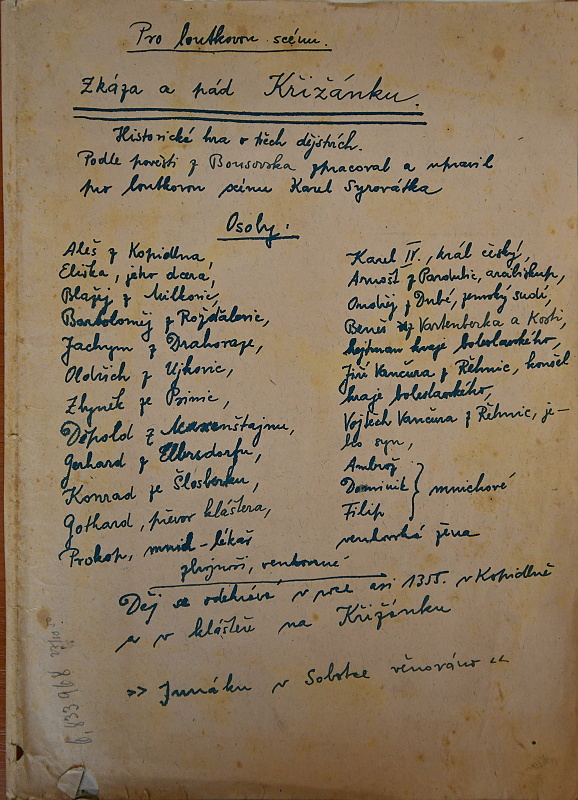 Pro loutkovou scénu.
Zkáza a pád Křižánku.
Historické hra o třech dějstvích.
Podle pověsti z Bousovska zpracoval a upravil
pro loutkovou scénu Karel Syrovátka
Osoby.
Aleš z Kopidlna,
Eliška, jeho dcera,
Blažej z Milkovic,
Bartoloměj z Rožďalovic,
Jachym z Drahoraze,
Oldřich z Ujkovic,
Zbyněk ze Psinic,
Děpold z
Gerhard z Elbrsdorfu,
Konrad ze Šlosberku,
Gothard, převor kláštera,
Prokop, mnich-lékař
zbrojnoši, venkované
Karel IV., král český,
Arnošt z Pardubic, arcibiskup,
Ondřej z Dubé, zemský sudí,
Beneš z Vartenberka a Kosti,
hejtman kraje boleslavského,
Jiří Vančura z Řehnic, konšel
kraje boleslavského,
Vojtěch Vančura z Řehnic, je-
ho syn,
Ambrož
Dominik } mnichové
Filip
venkovská žena
Děj se odehrává v roce asi 1355. v Kopidlně
a v klášteře na Křižánku
>> Junáku v Sobotce věnováno <<
6,833 9/68